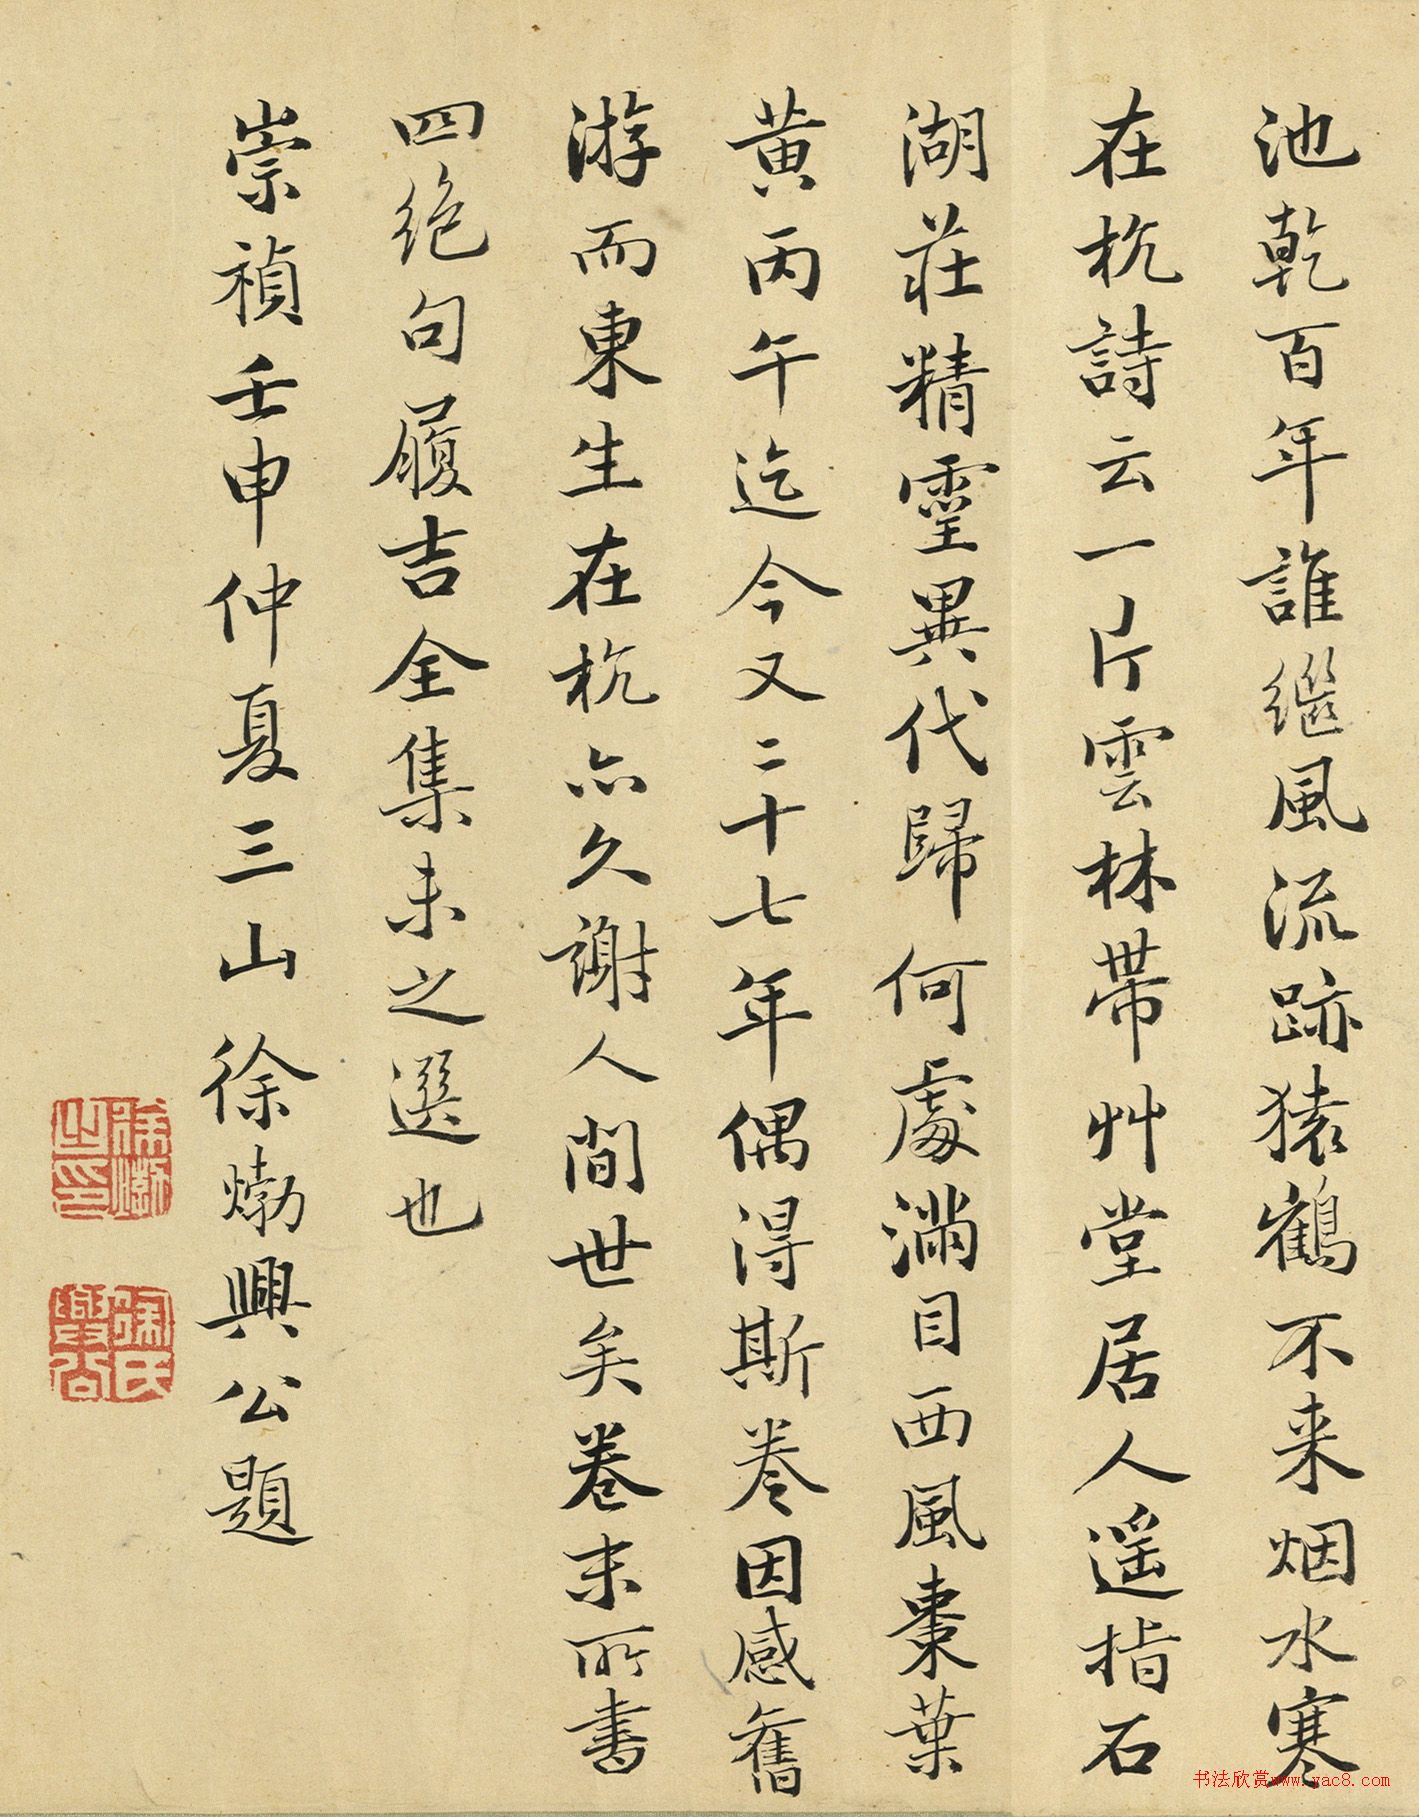 池乾百年誰繼風流跡猿鶴不来烟水寒
在杭詩云一片雲林帶艸堂居人遥指石
湖莊精靈異代歸何處滿目西風棗葉
黄丙午迄今又二十七年偶得斯卷因感舊
游而東生在杭亦久謝人間世矣卷末所書
四絶句履吉全集未之選也
崇禎壬申仲夏三山徐𤊹興公題
徐𤊹之印
徐氏興公
书法欣赏www.yac8.com